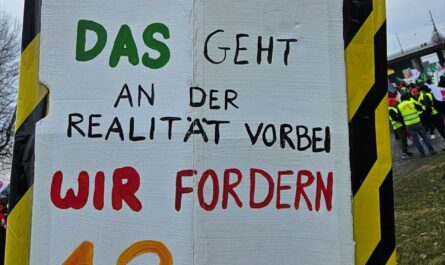 DAS GEHT
AN DER
REALITÄT VORBEI
WIR FORDERN